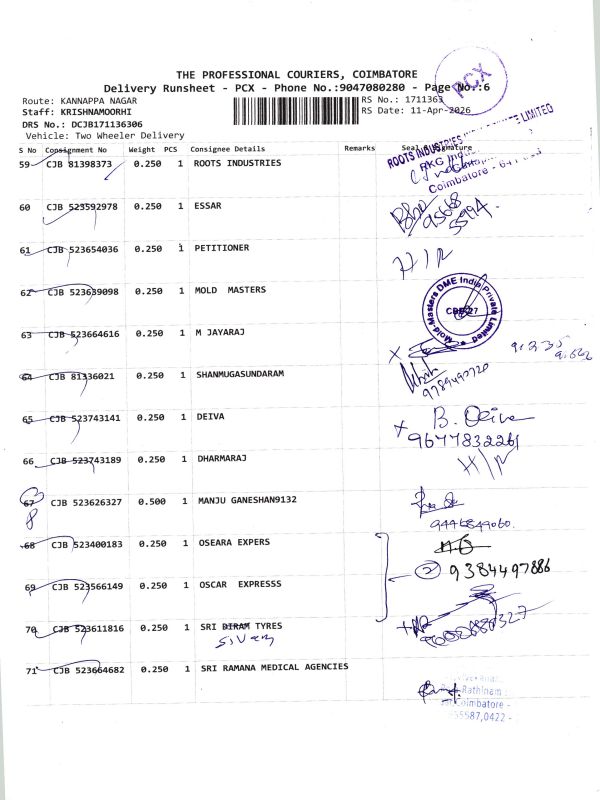 THE PROFESSIONAL COURIERS, COIMBATORE
Delivery Runsheet - PCX - Phone No.:9047080280 - Page No.:6
PCX
Route: KANNAPPA NAGAR
RS No.: 1711363
Staff: KRISHNAMOORHI
RS Date: 11-Apr-2026
DRS No.: DCJB171136306
Vehicle: Two Wheeler Delivery
S No Consignment No Weight PCS Consignee Details Remarks Seal & Signature
59 CJB 81398373 0.250 1 ROOTS INDUSTRIES
ROOTS INDUSTRIES LIMITED
Coimbatore - 641
60 CJB 523592978 0.250 1 ESSAR
61 CJB 523654036 0.250 1 PETITIONER
H/R
62 CJB 523639098 0.250 1 MOLD MASTERS
Mold-Masters DME India Private Limited
63 CJB 523664616 0.250 1 M JAYARAJ
64 CJB 81336021 0.250 1 SHANMUGASUNDARAM
65 CJB 523743141 0.250 1 DEIVA
B. Deiva
9677832261
66 CJB 523743189 0.250 1 DHARMARAJ
H/R
67 CJB 523626327 0.500 1 MANJU GANESHAN9132
8
9446849060.
68 CJB 523400183 0.250 1 OSEARA EXPERS
2 9384497886
69 CJB 523566149 0.250 1 OSCAR EXPRESSS
70 CJB 523611816 0.250 1 SRI DIRAM TYRES
71 CJB 523664682 0.250 1 SRI RAMANA MEDICAL AGENCIES
Rathinam
Coimbatore -
55587,0422 -